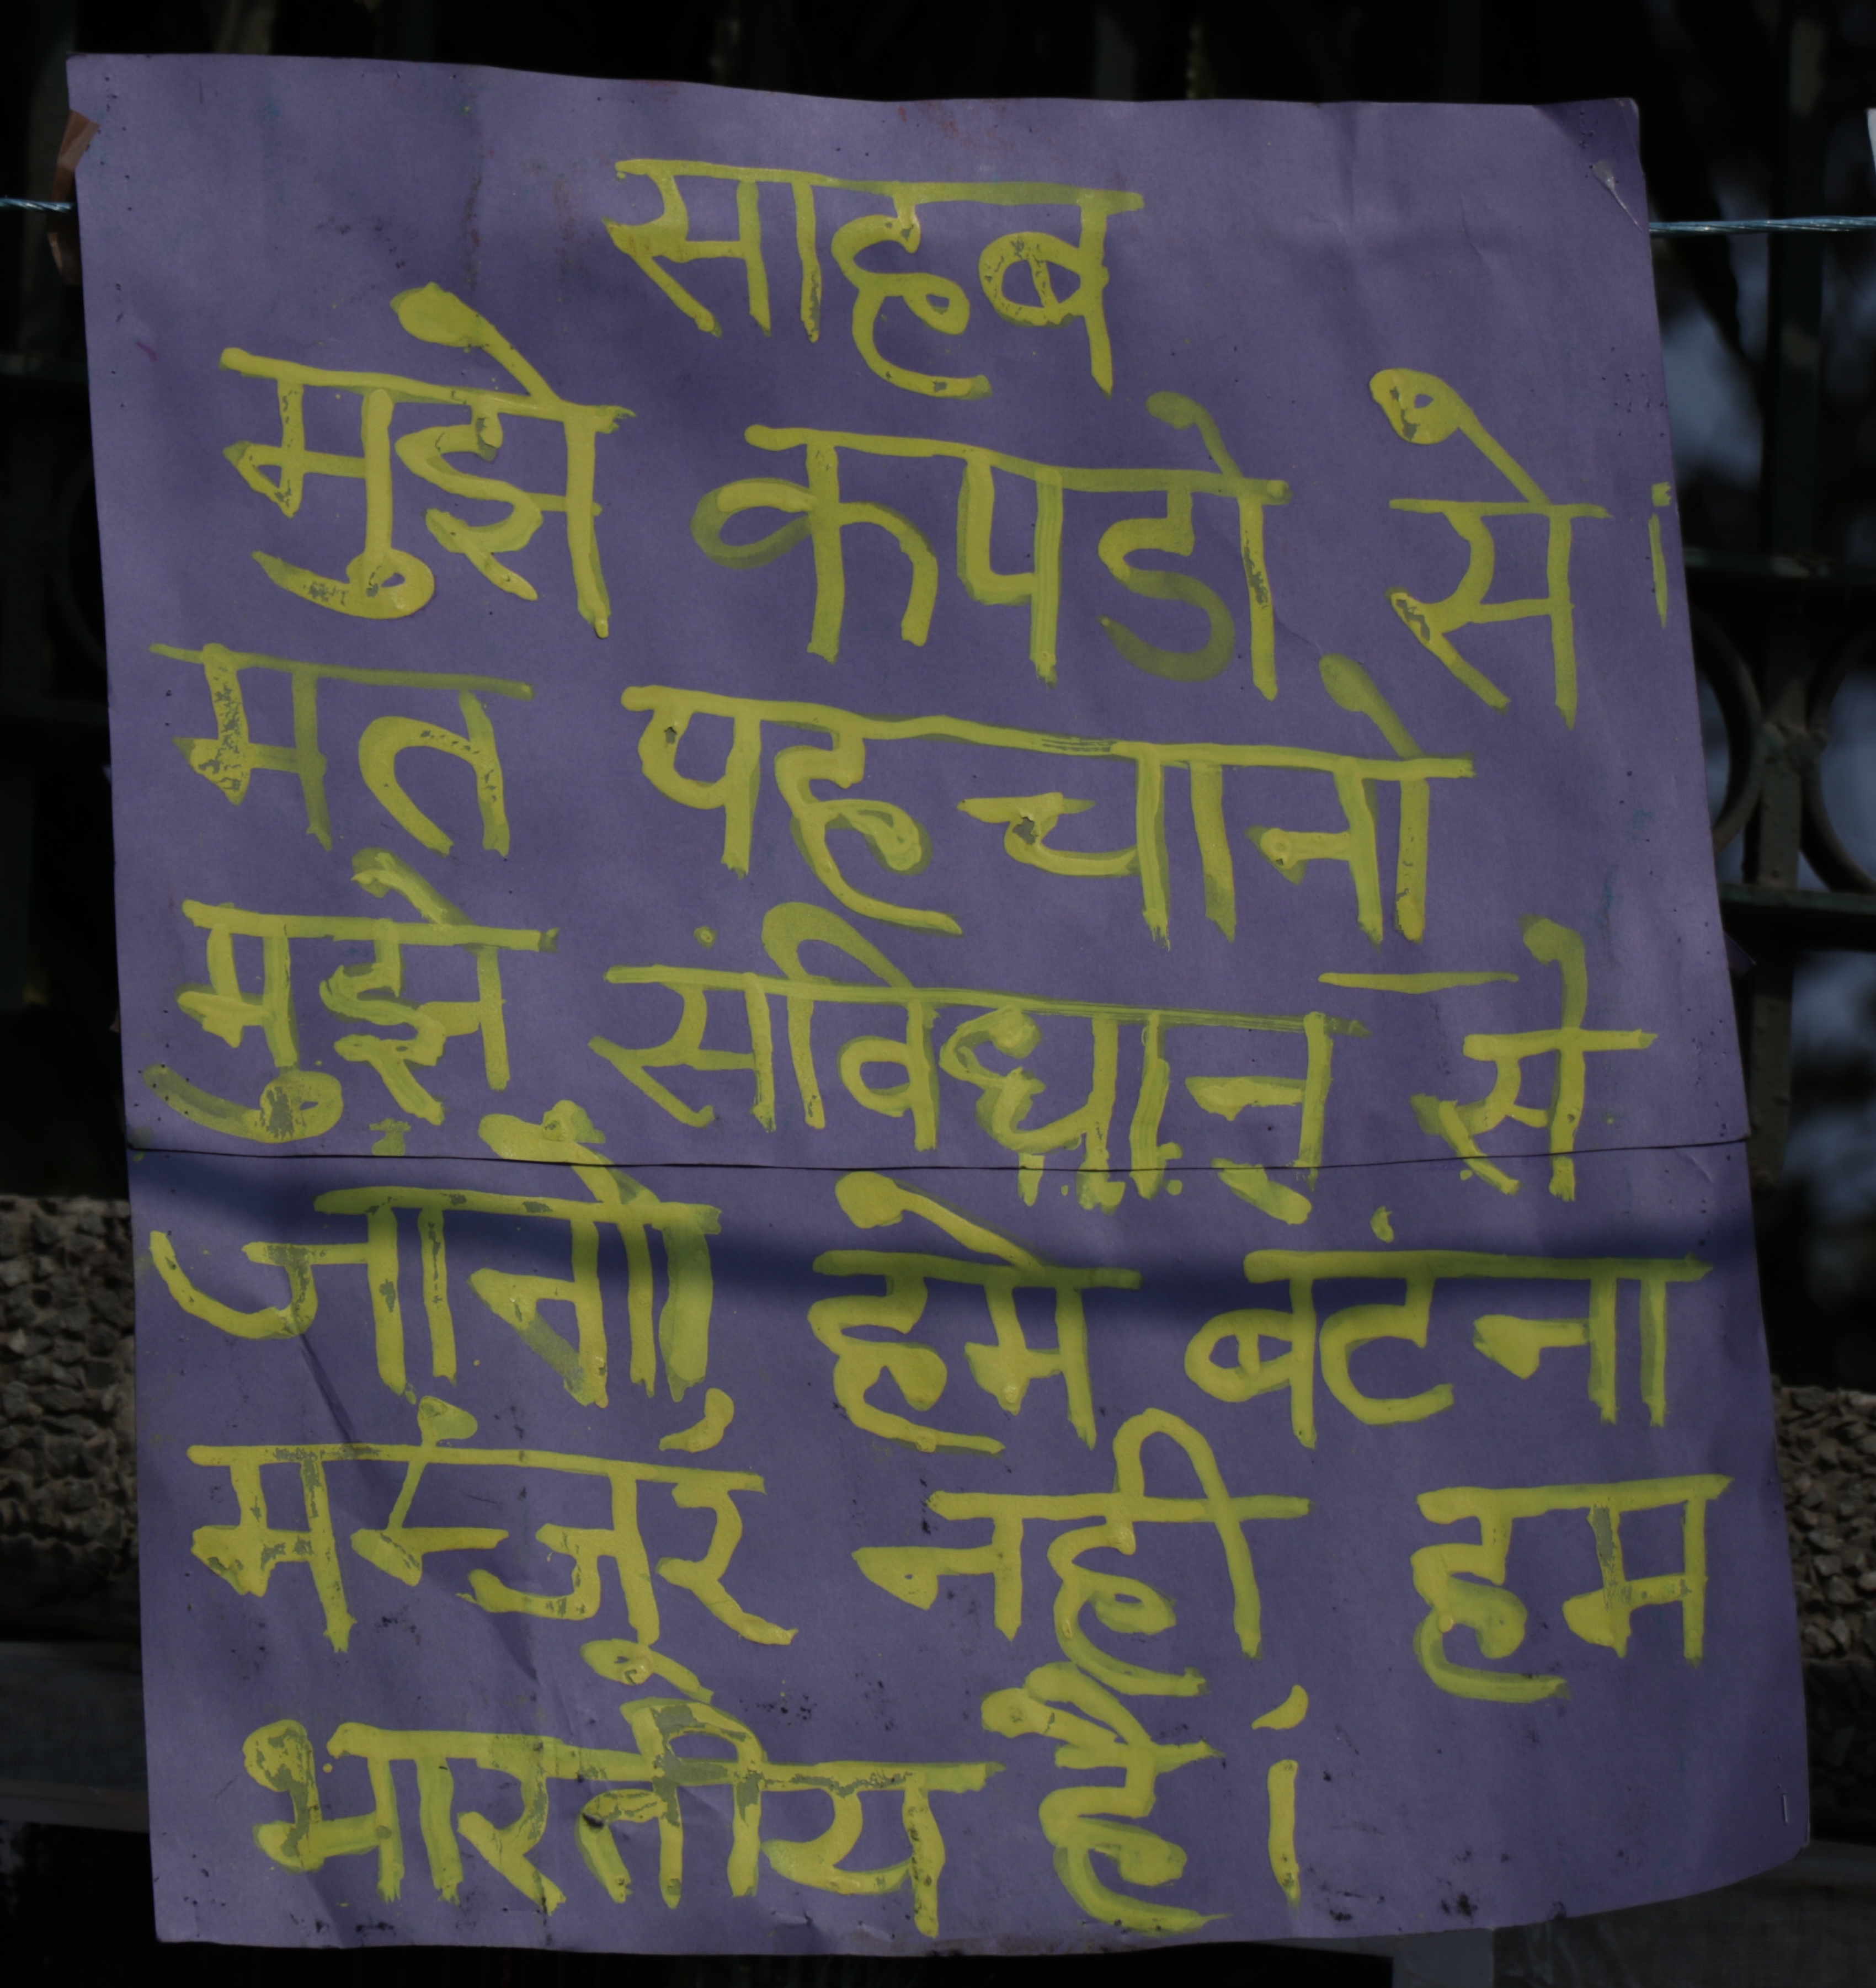 साहब
मुझे कपडो से ।
मत पहचानो
मुझे संविधान से
जानो हमे बंटना
मन्जूर नही हम
भारतीय है ।